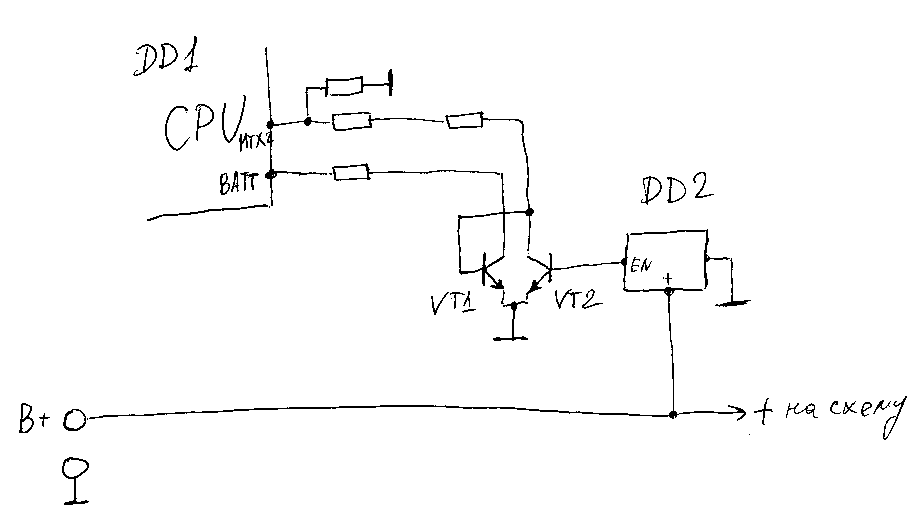 DD1
CPU
MTX2
BATT
DD2
EN
+
VT1
VT2
B+
+ на схему